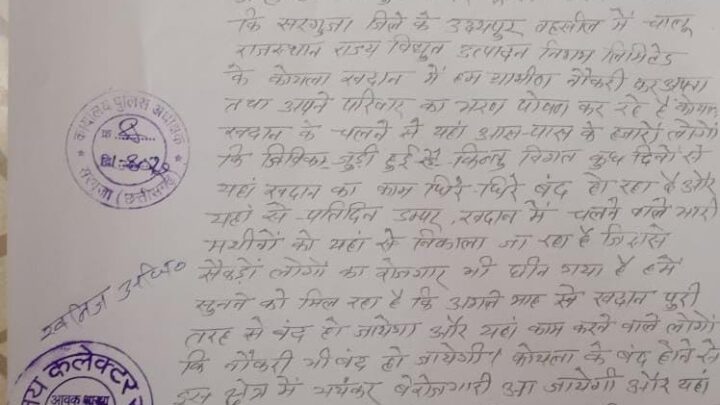 कि सरगुजा जिले के उदयपुर तहसील में चालू
राजस्थान राज्य विद्युत उत्पादन निगम लिमिटेड
के कोयला खदान में हम ग्रामीण नौकरी कर अपना
तथा अपने परिवार का भरण पोषण कर रहे है
खदान के चलने से यहां आस-पास के हजारों लोगों
कि जिविका जुड़ी हुई है किन्तु विगत कुछ दिनों से
यहां खदान का काम धिरे-धिरे बंद हो रहा है और
यहां से प्रतिदिन डम्पर, खदान में चलने वाले भारी
मशीनों को यहां से निकाला जा रहा है जिससे
सैकड़ों लोगों का रोजगार भी छीन गया है हमें
सुनने को मिल रहा है कि अगले माह से खदान पुरी
तरह से बंद हो जायेगा और यहां काम करने वाले लोगों
कि नौकरी भी बंद हो जायेगी। कोयला के बंद होने से
इस क्षेत्र में भयंकर बेरोजगारी आ जायेगी और यहां
कार्यालय पुलिस अधीक्षक
सरगुजा (छत्तीसगढ़)
खनिज अधि०
कलेक्टर
आवक शाखा